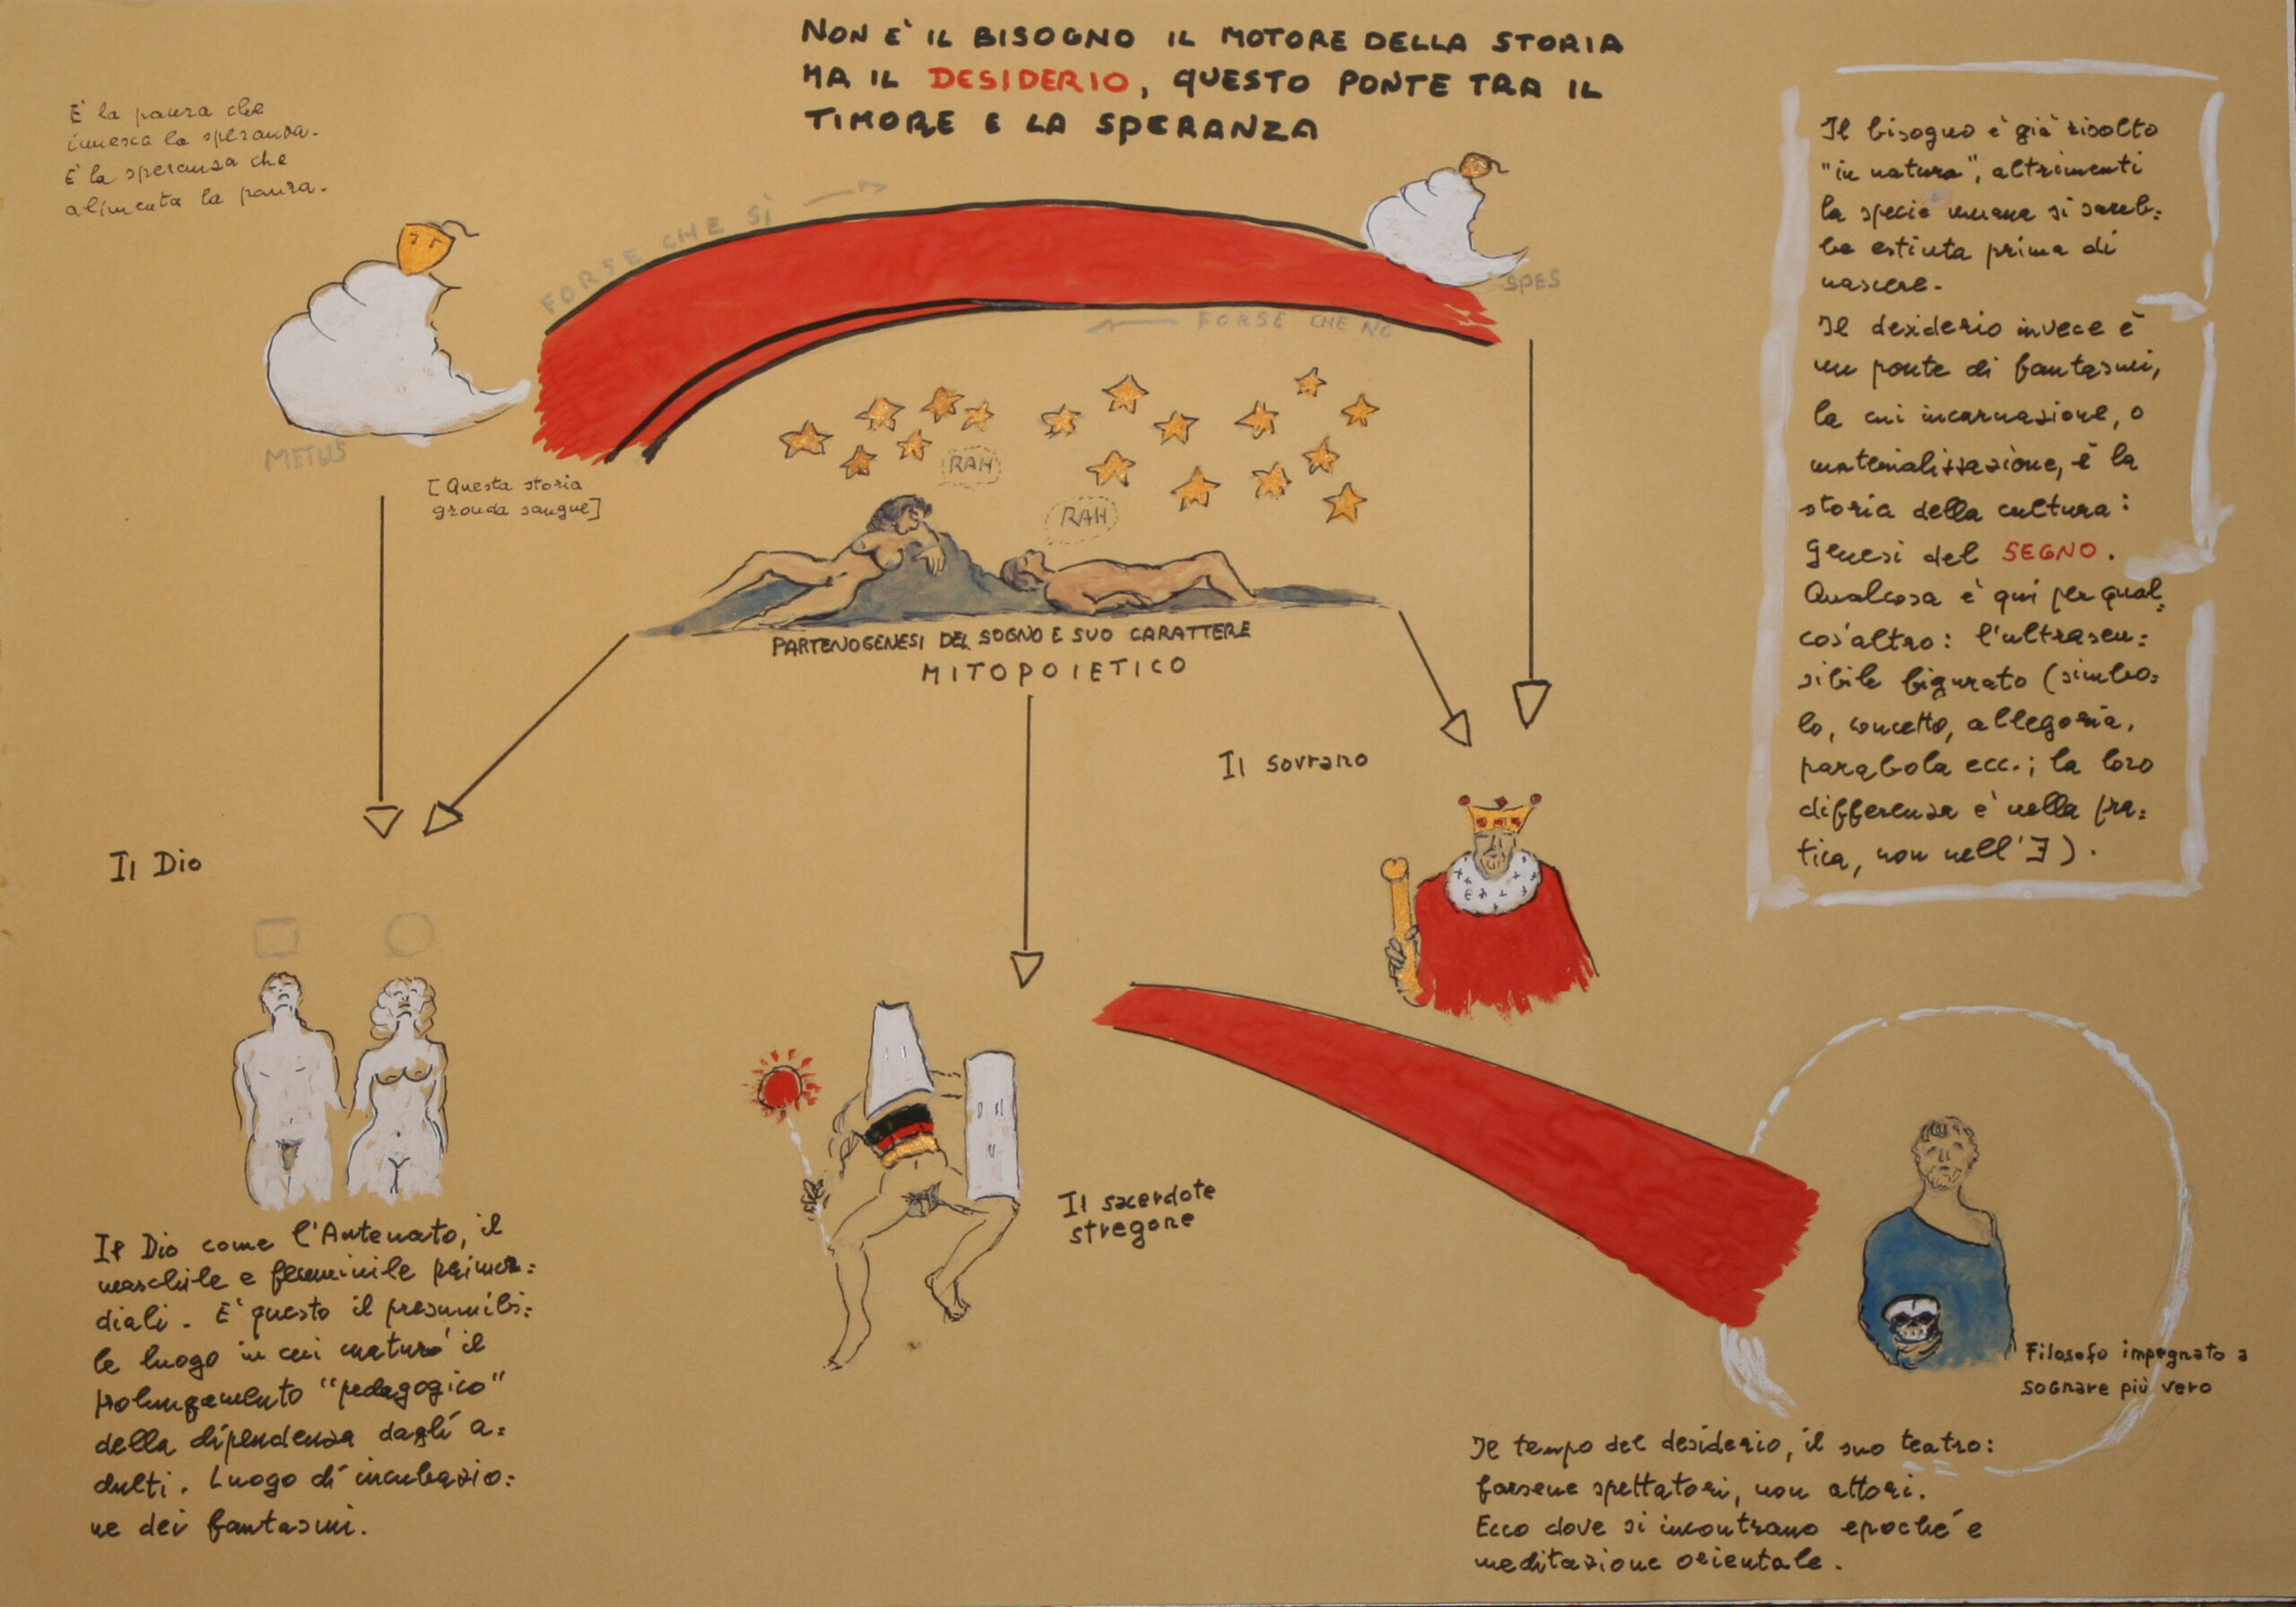 NON E' IL BISOGNO IL MOTORE DELLA STORIA
MA IL DESIDERIO, QUESTO PONTE TRA IL
TIMORE E LA SPERANZA
E' la paura che
innesca la speranza.
E' la speranza che
alimenta la paura.
FORSE CHE SÌ
SPES
FORSE CHE NO
METUS
[Questa storia
gronda sangue]
RAH
RAH
PARTENOGENESI DEL SOGNO E SUO CARATTERE
MITOPOIETICO
Il bisogno è già risolto
"in natura", altrimenti
la specie umana si sareb=
be estinta prima di
nascere.
Il desiderio invece è
un ponte di fantasmi,
la cui incarnazione, o
materializzazione, è la
storia della cultura:
genesi del SEGNO.
Qualcosa è qui per qual=
cos'altro: l'ultrasen=
sibile figurato (simbo=
lo, concetto, allegoria,
parabola ecc.; la loro
differenza è nella pra=
tica, non nell'∃).
Il sovrano
Il Dio
Il Dio come l'Antenato, il
maschile e femminile primor=
diali. E' questo il presumibi=
le luogo in cui maturò il
prolungamento "pedagogico"
della dipendenza dagli a=
dulti. Luogo di incubazio=
ne dei fantasmi.
Il sacerdote
stregone
Filosofo impegnato a
sognare più vero
Il tempo del desiderio, il suo teatro:
farsene spettatori, non attori.
Ecco dove si incontrano epoché e
meditazione orientale.